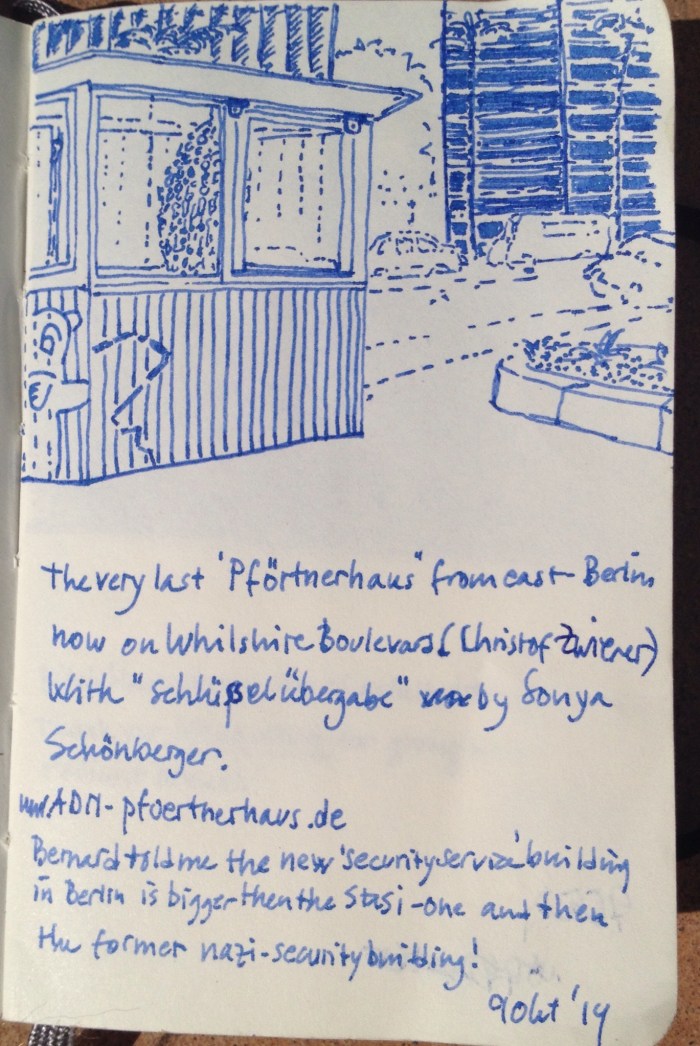 the very last 'Pförtnerhaus" from east-Berlin
now on Whilshire Boulevard (Christof Zwiener)
With "Schlüßelübergabe" by Sonya
Schönberger.
www.ADN-pfoertnerhaus.de
Bernard told me the new 'security service' building
in Berlin is bigger then the Stasi-one and then
the former nazi-security building!
9 Okt '14